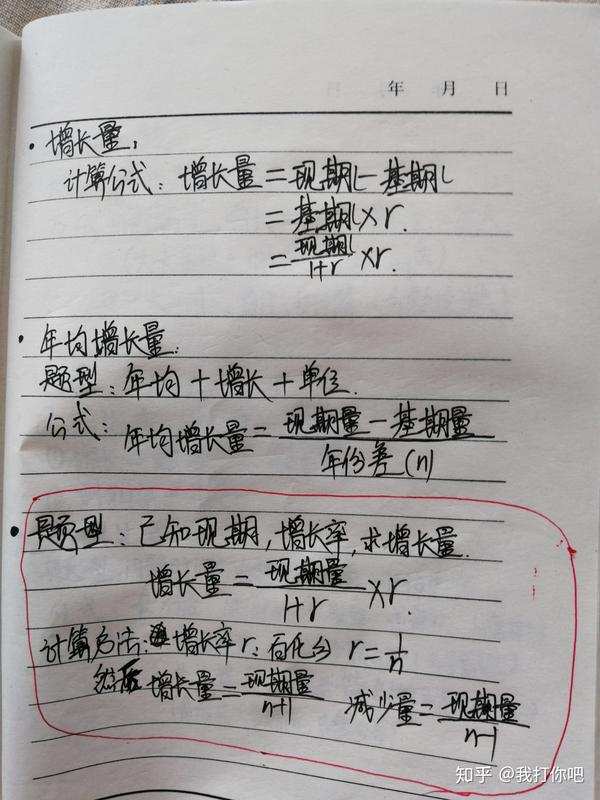 年 月 日
• 增长量:
计算公式: 增长量 = 现期 - 基期
= 基期 × r.
= 现期/1+r × r.
• 年均增长量:
题型: 年均 + 增长 + 单位.
公式: 年均增长量 = 现期量 - 基期量/年份差 (n)
• 题型: 已知现期, 增长率, 求增长量.
增长量 = 现期量/1+r × r.
计算方法: 增长率 r: 百化分 r = 1/n
然后 增长量 = 现期量/n+1 减少量 = 现期量/n-1
知乎 @我打你吧